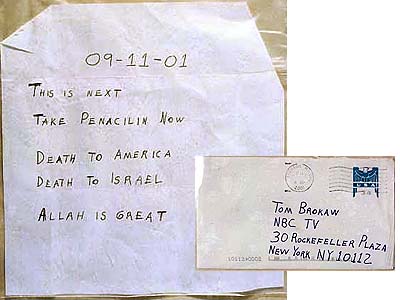 09-11-01
THIS IS NEXT
TAKE PENACILIN NOW
DEATH TO AMERICA
DEATH TO ISRAEL
ALLAH IS GREAT
USA
TOM BROKAW
NBC TV
30 ROCKEFELLER PLAZA
NEW YORK NY 10112